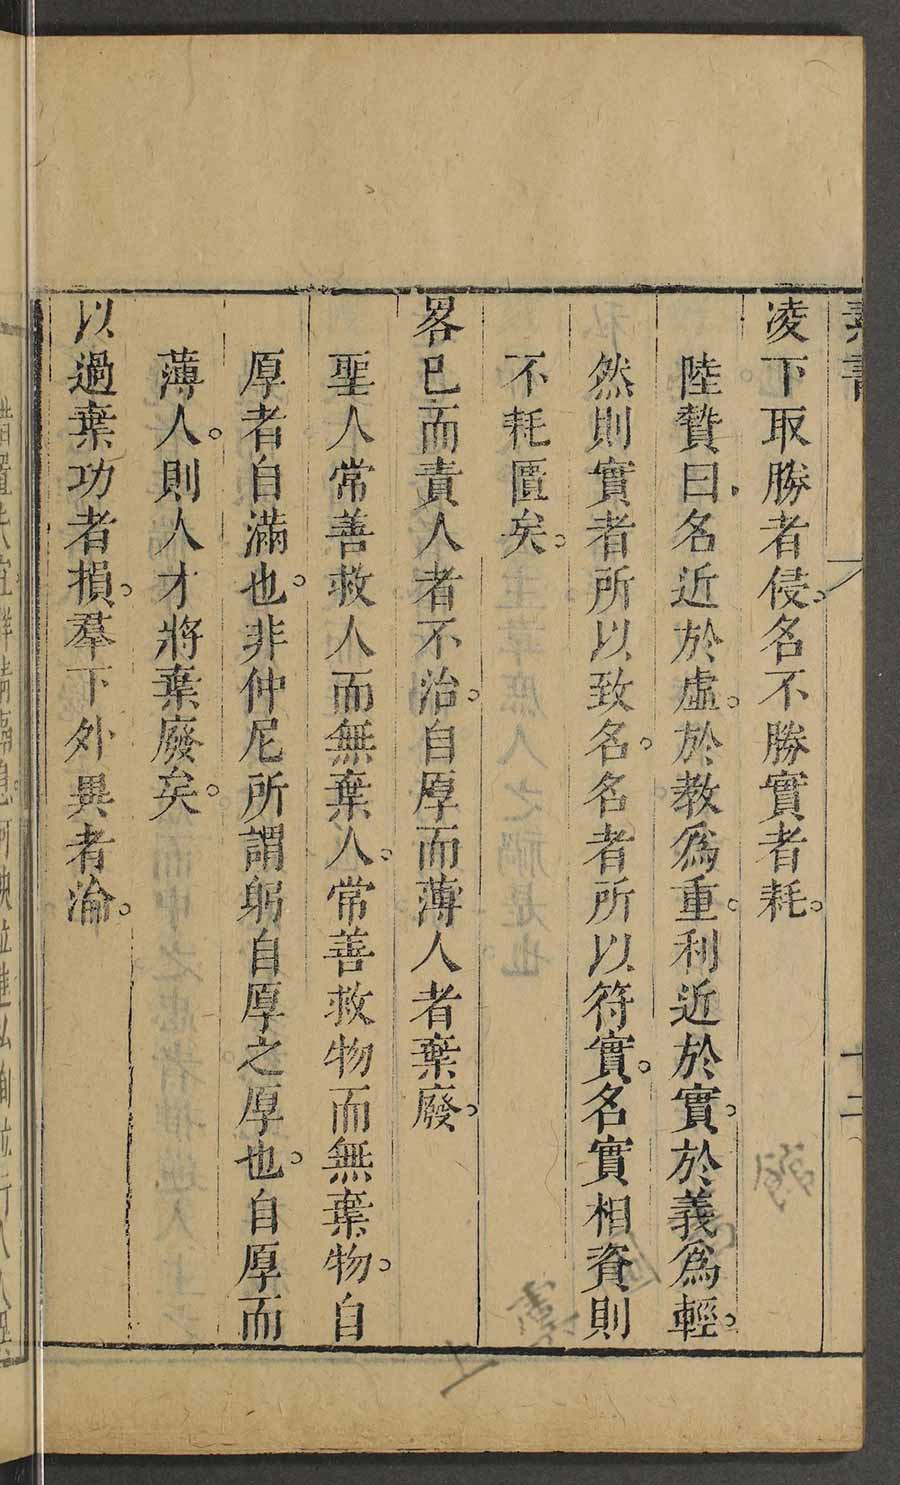 素書
十二
凌下取勝者侵。名不勝實者耗。
陸贄曰。名近於虛。於教為重。利近於實。於義為輕。
然則實者所以致名。名者所以符實。名實相資則
不耗匱矣。
畧已而責人者不治。自厚而薄人者棄廢。
聖人常善救人而無棄人。常善救物而無棄物。自
厚者自滿也。非仲尼所謂躬自厚之厚也。自厚而
薄人。則人才將棄廢矣。
以過棄功者損。羣下外異者淪。